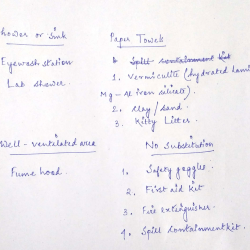 Shower or sink
Eyewash station
Lab shower.
Paper Towels
Spill containment kit
1. Vermiculite (hydrated lami
Mg-Al iron silicate).
2. Clay / sand.
3. Kitty Litter.
Well-ventilated area
Fume hood.
No Substitution
1. Safety goggles
2. First aid kit
3. Fire extinguisher
4. Spill containment kit